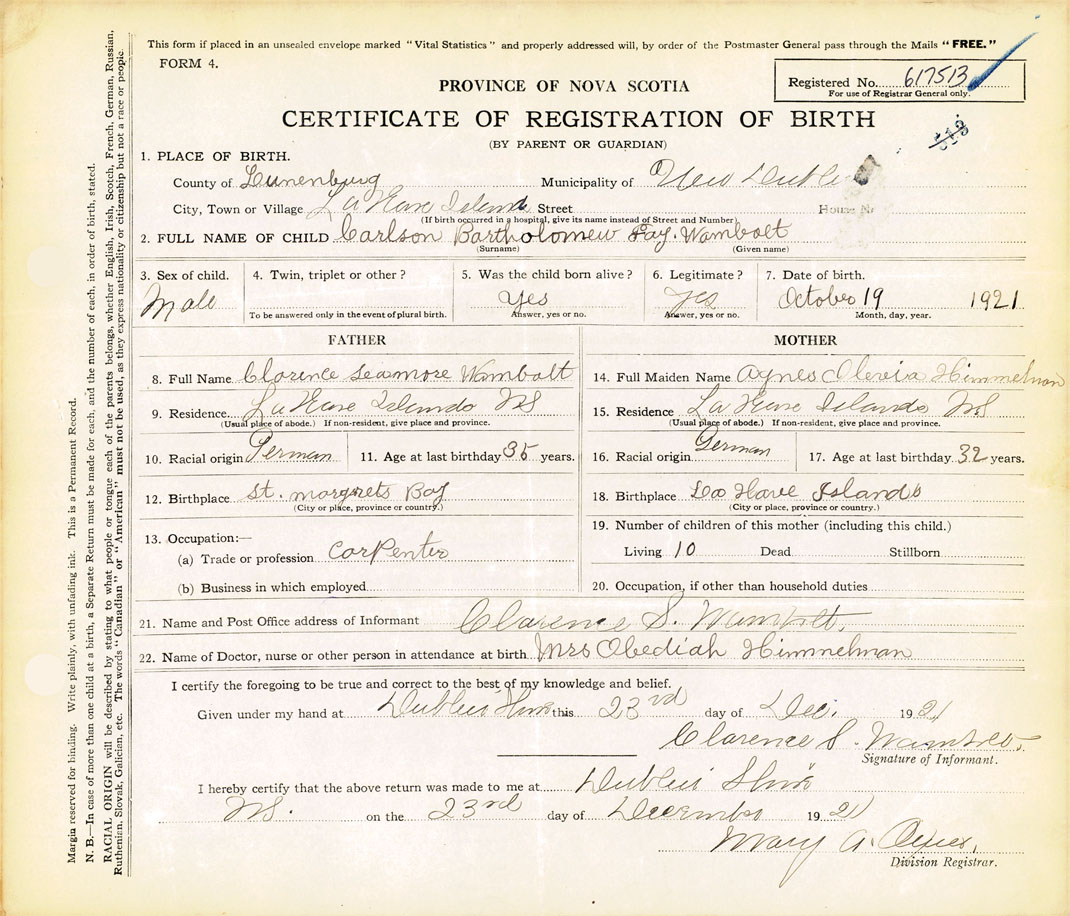 This form if placed in an unsealed envelope marked "Vital Statistics" and properly addressed will, by order of the Postmaster General pass through the Mails "FREE."
FORM 4.
Registered No. 617513
For use of Registrar General only.
PROVINCE OF NOVA SCOTIA
CERTIFICATE OF REGISTRATION OF BIRTH
(BY PARENT OR GUARDIAN)
1. PLACE OF BIRTH.
County of Lunenburg Municipality of New Dubli
City, Town or Village La Have Island Street House
(If birth occurred in a hospital, give its name instead of Street and Number)
2. FULL NAME OF CHILD Carlson Bartholomew Fay. Wambolt
(Surname) (Given name)
3. Sex of child. 4. Twin, triplet or other? 5. Was the child born alive? 6. Legitimate? 7. Date of birth.
Male Yes Yes October 19 1921
To be answered only in the event of plural birth. Answer, yes or no. Answer, yes or no. Month, day, year.
FATHER MOTHER
8. Full Name Clarence Seamore Wambolt 14. Full Maiden Name Agnes Olevia Himmelman
9. Residence. La Have Islands NS 15. Residence La Have Islands NS
(Usual place of abode.) If non-resident, give place and province. (Usual place of abode.) If non-resident, give place and province.
10. Racial origin German 11. Age at last birthday 35 years. 16. Racial origin German 17. Age at last birthday 32 years.
12. Birthplace St. Margrets Bay 18. Birthplace La Have Islands
(City or place, province or country.) (City or place, province or country.)
13. Occupation:— 19. Number of children of this mother (including this child.)
(a) Trade or profession Carpenter Living 10 Dead Stillborn
(b) Business in which employed 20. Occupation, if other than household duties
21. Name and Post Office address of Informant Clarence S. Wambolt.
22. Name of Doctor, nurse or other person in attendance at birth Mrs Obediah Himmelman
I certify the foregoing to be true and correct to the best of my knowledge and belief.
Given under my hand at Dublin Shore this 23rd day of Dec. 1921
Clarence S. Wambolt.
Signature of Informant.
I hereby certify that the above return was made to me at Dublin Shore
NS. on the 23rd day of December 1921
Mary A.
Division Registrar.
Margin reserved for binding. Write plainly, with unfading ink. This is a Permanent Record.
N. B.—In case of more than one child at a birth, a Separate Return must be made for each, and the number of each, in order of birth, stated.
RACIAL ORIGIN will be described by stating to what people or tongue each of the parents belongs, whether English, Irish, Scotch, French, German, Russian,
Ruthenian, Slovak, Galician, etc. The words "Canadian" or "American" must not be used, as they express nationality or citizenship but not a race or people.